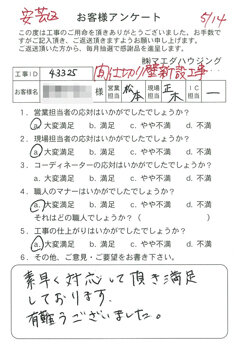 安芸区 お客様アンケート 5/14
この度は工事のご用命を頂きありがとうございました。お手数で
すがご記入頂き、ご返送頂きますようお願い申し上げます。
ご返送頂いた方から、毎月抽選で感謝品を進呈します。
㈱マエダハウジング
工事ID 43325 間仕切り壁新設工事
お客様名 営業担当 松本 現場担当 正木 IC担当 ー
1. 営業担当者の応対はいかがでしたでしょうか？
a. 大変満足 b. 満足 c. やや不満 d. 不満
2. 現場担当者の応対はいかがでしたでしょうか？
a. 大変満足 b. 満足 c. やや不満 d. 不満
3. コーディネーターの応対はいかがでしたでしょうか？
a. 大変満足 b. 満足 c. やや不満 d. 不満
4. 職人のマナーはいかがでしたでしょうか？
a. 大変満足 b. 満足 c. やや不満 d. 不満
それはどの職人でしょうか？（ ）
5. 工事の仕上がりはいかがでしたでしょうか？
a. 大変満足 b. 満足 c. やや不満 d. 不満
6. その他、ご意見・ご要望をお書き下さい。
素早く対応して頂き満足
しております。
有難うございました。